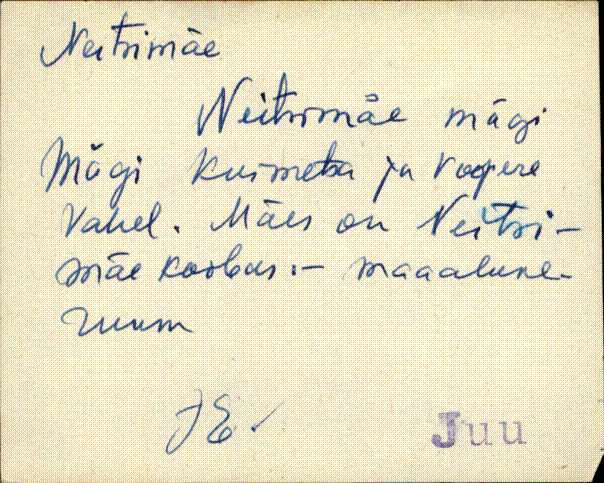 Neitrimäe
Neitrimäe mägi
Mägi Kuimetsa ja Voopere
vahel. Mäes on Neitri-
mäe koobas :- maaalune-
ruum
JE.
Juu